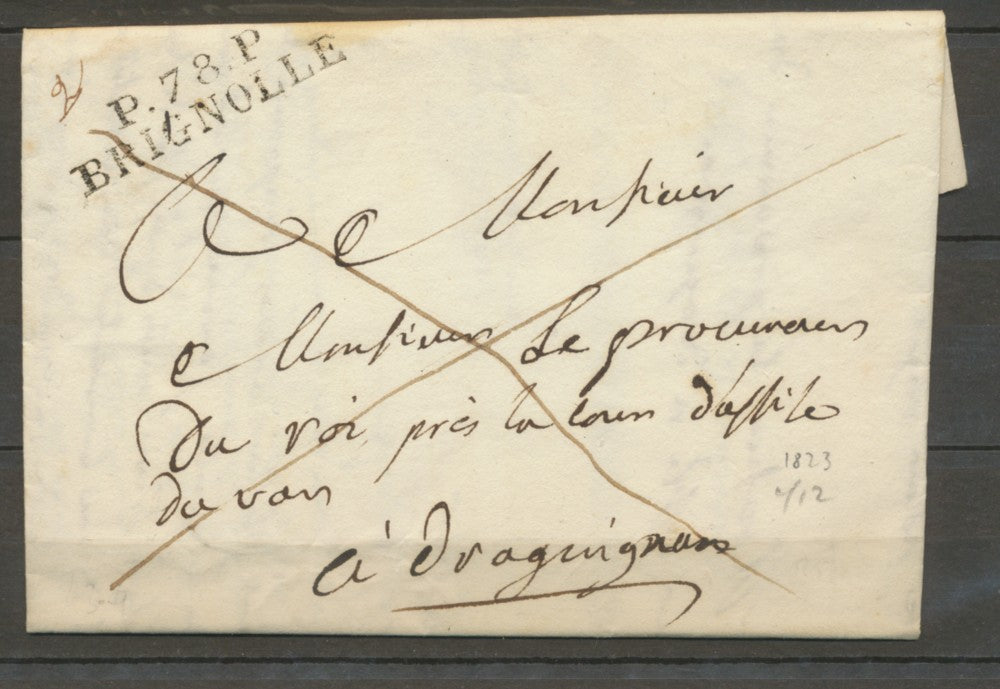 2
P.78.P
BRIGNOLLE
A Monsieur
Monsieur Le procureur
Du roi près la cour d'assise
du var
à Draguignan
1823
4/12